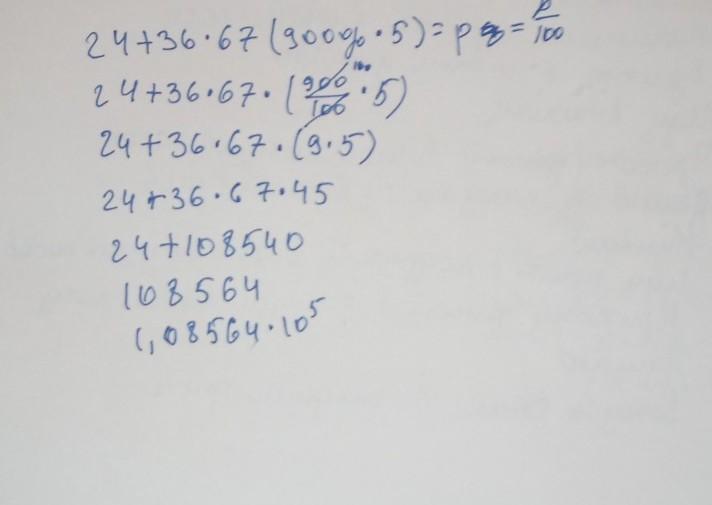 24+36·67(900%·5)=p%=p/100
24+36·67·(900/100·5)
24+36·67·(9·5)
24+36·67·45
24+108540
108564
1,08564·10⁵